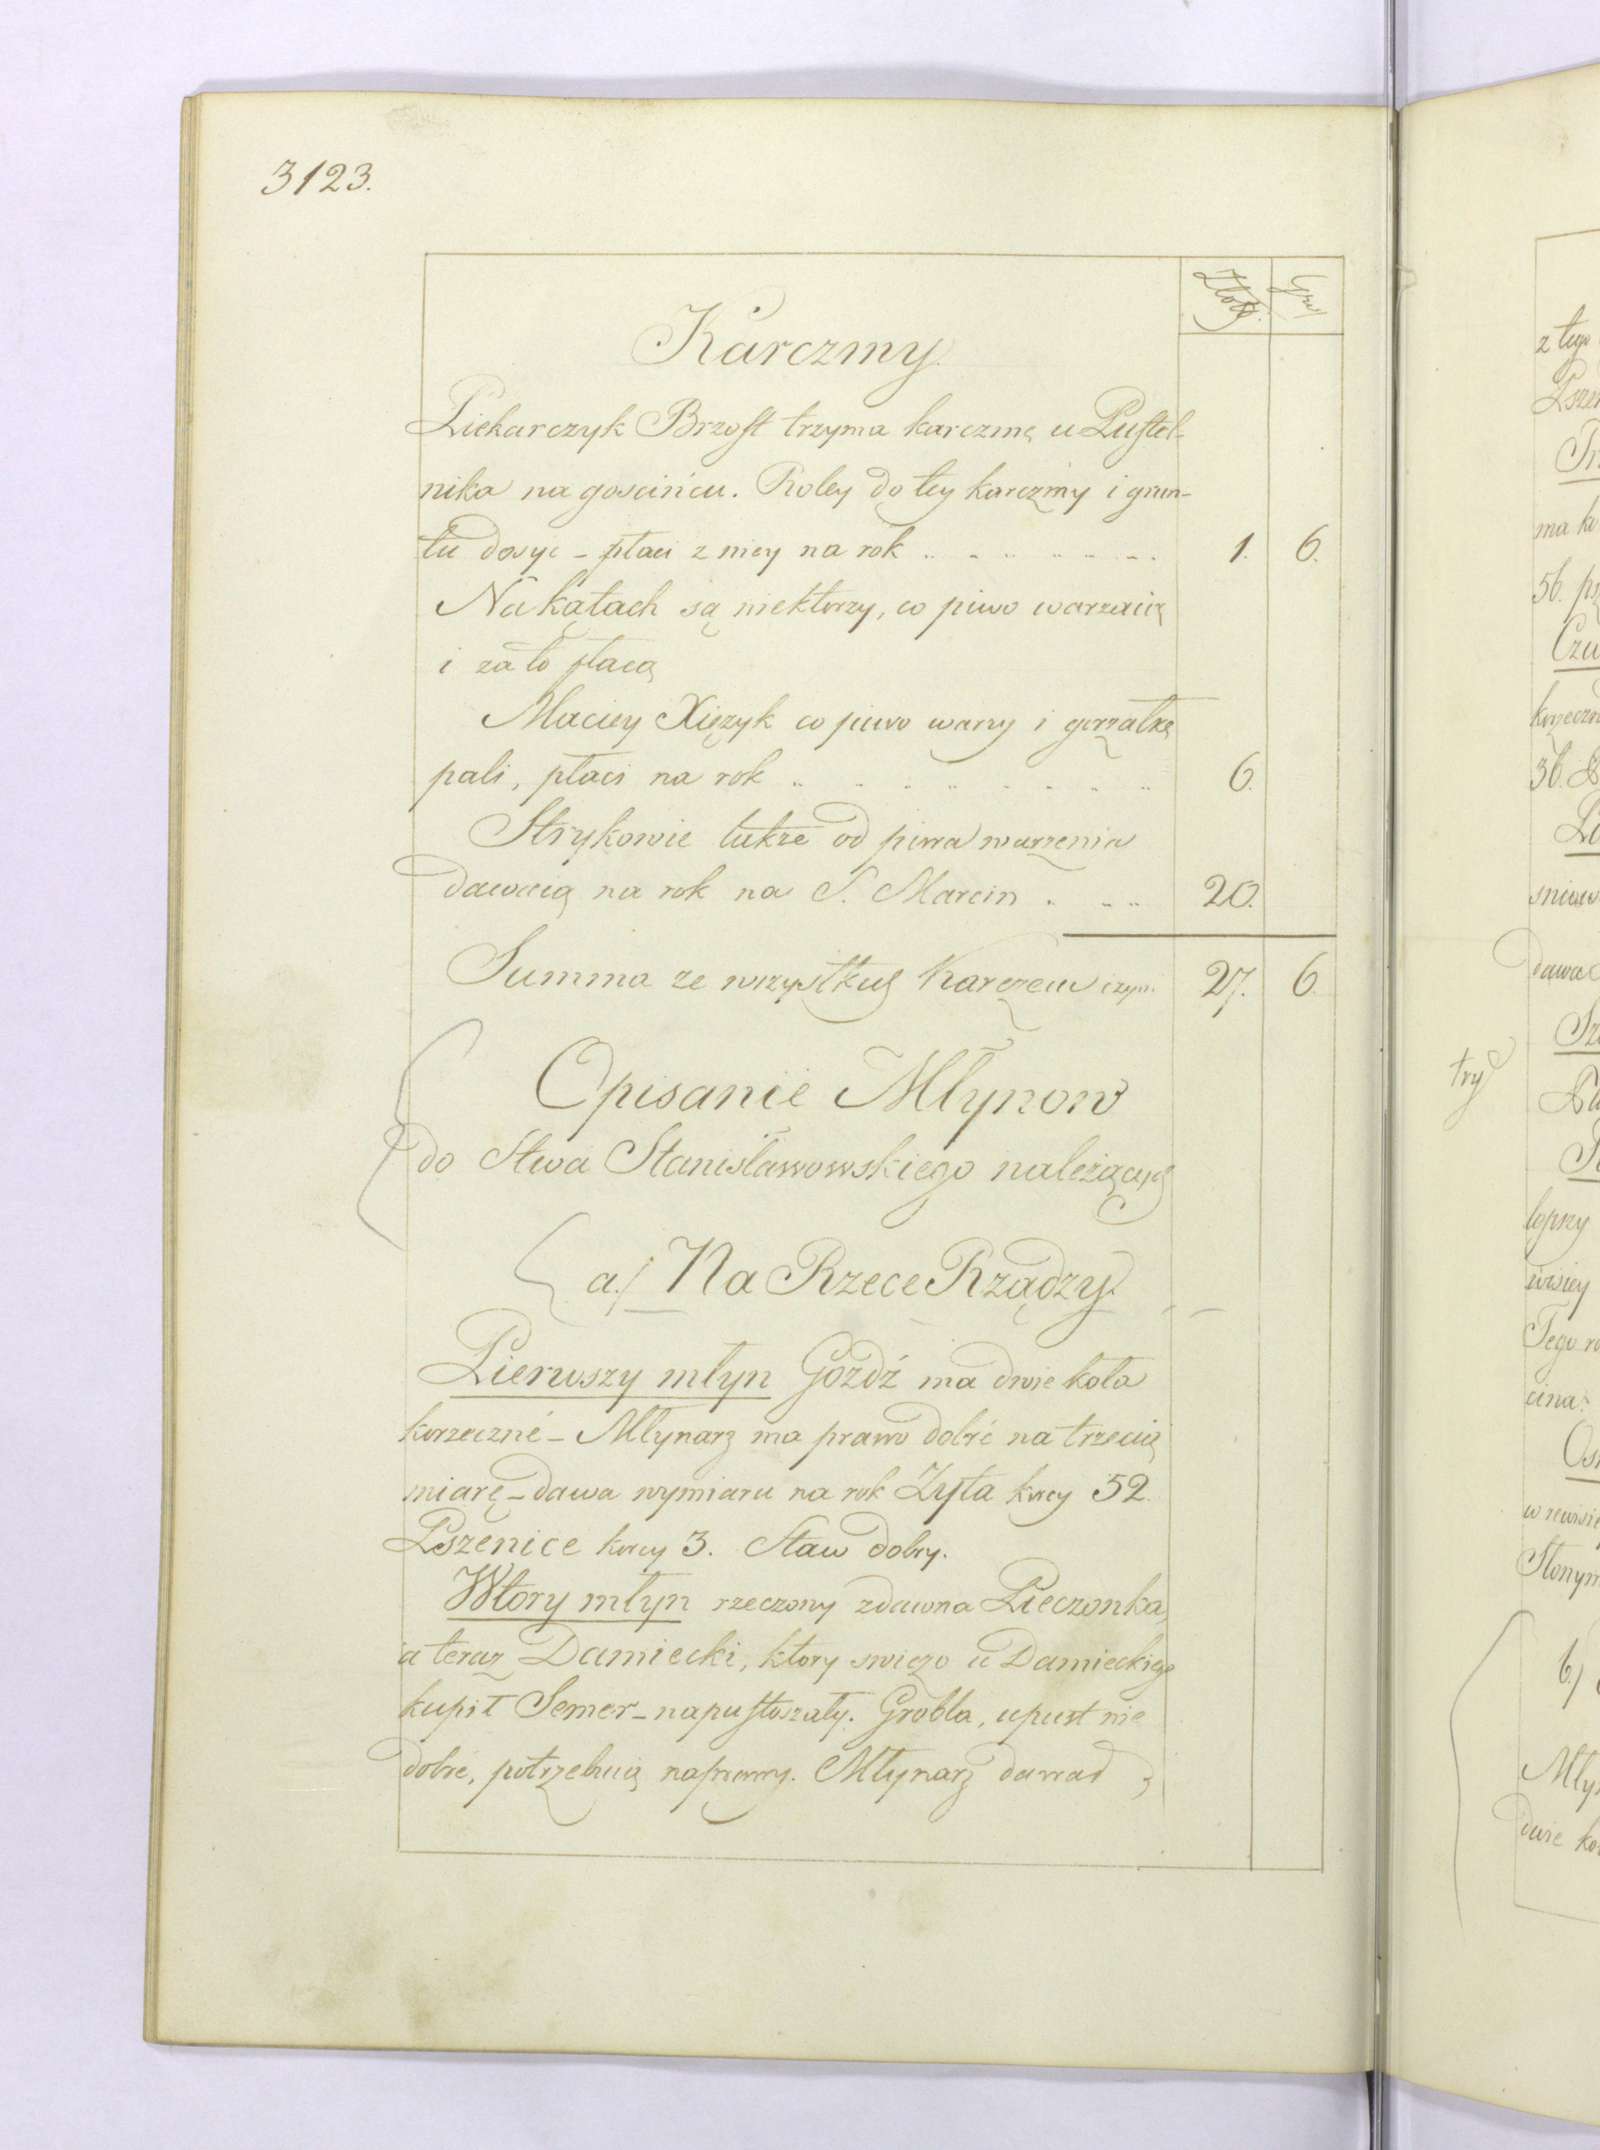 3123.
Złote Gro
Karczmy.
Piekarczyk Brzost trzyma karczmę u Pustel-
nika na goscińcu. Roley do tey karczmy i grun-
tu dosyc – płaci z niey na rok 1. 6.
Na kątach są niektorzy, co piwo warzaią
i za to płacą
Maciey Xiężyk co piwo warzy i gorzałkę
pali, płaci na rok 6.
Strykowie także od piwa warzenia
dawaią na rok na S. Marcin 20.
Summa ze wszystkich Karczem czyni 27. 6.
Opisanie Młynow
do Stwa Stanisławowskiego należących
a./ Na Rzece Rządzy.
Pierwszy młyn Gozdź ma dwie koła
korzeczné – Młynarz ma prawo dobré na trzecią
miarę – dawa wymiaru na rok Żyta korcy 52.
Pszenice korcy 3. Staw dobry.
Wtory młyn rzeczony zdawna Pieczonka,
a teraz Damiecki, ktory swiezo u Damieckiego
kupił Semer – napustoszały. Grobla, upust nie
dobre, potrzebuią naprawy. Młynarz dawał z
z tego
ma ko
56.
36.
dawa
try
lopszy
Tego ro
cina:
b./
Młyn
dwie ko